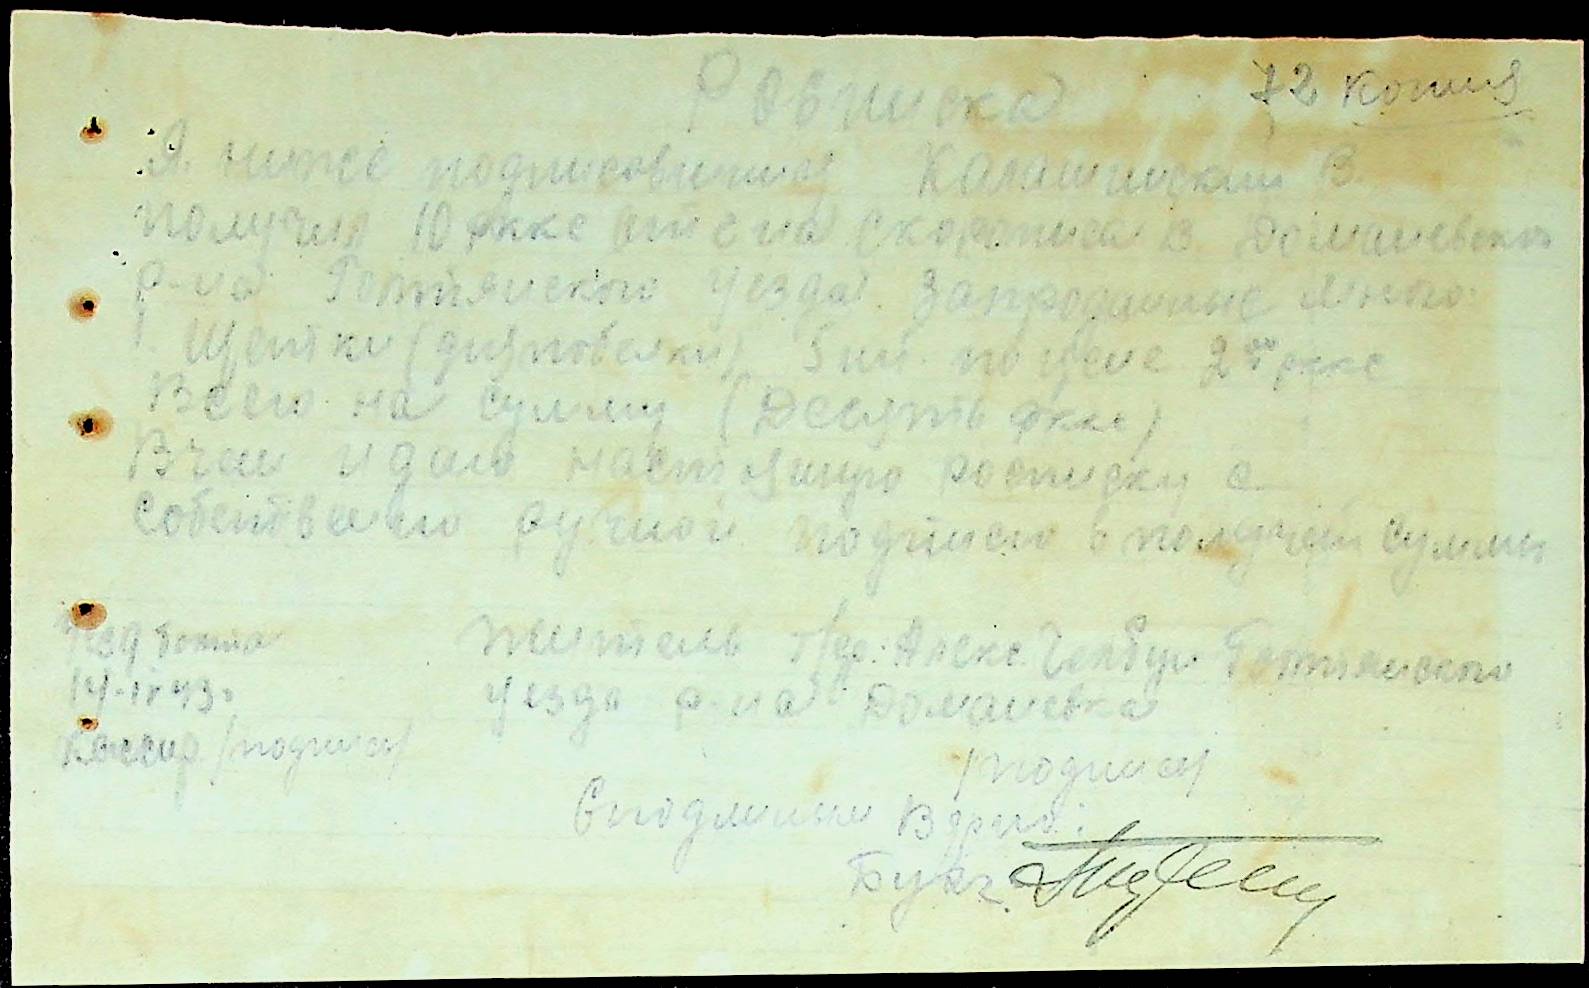 72 Копия
Росписка
Я. ниже подписовшийся Калашинский В.
Получил 10 рккс от с на Скорописа в. Доманевского
р-на Голтянского уезда. За проданные мною:
1. Щетки (для побелки) 5 шт. по цене 2 рккс
Всего на сумму (Десять рккс)
В чем и даю настоящую росписку с
собственно ручной подписью в получен суммы
14-IV 43г
Кассир /подпись/
житель Алекс Голтянского
уезда р-на Доманевка
/подпись/
С подлиным Верно:
Бухг.